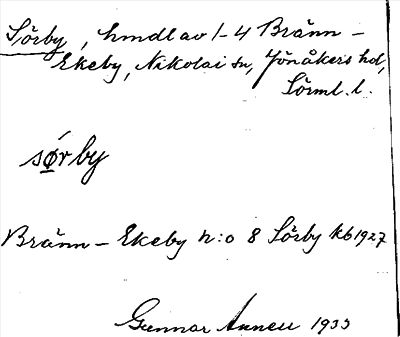 Sörby, hmdl av 1-4 Bränn-
Ekeby, Nikolai sn, Jönåkers hd,
Sörml. l.
sǿrby
Bränn-Ekeby n:o 8 Sörby kb 1927
Gunnar Annell 1933